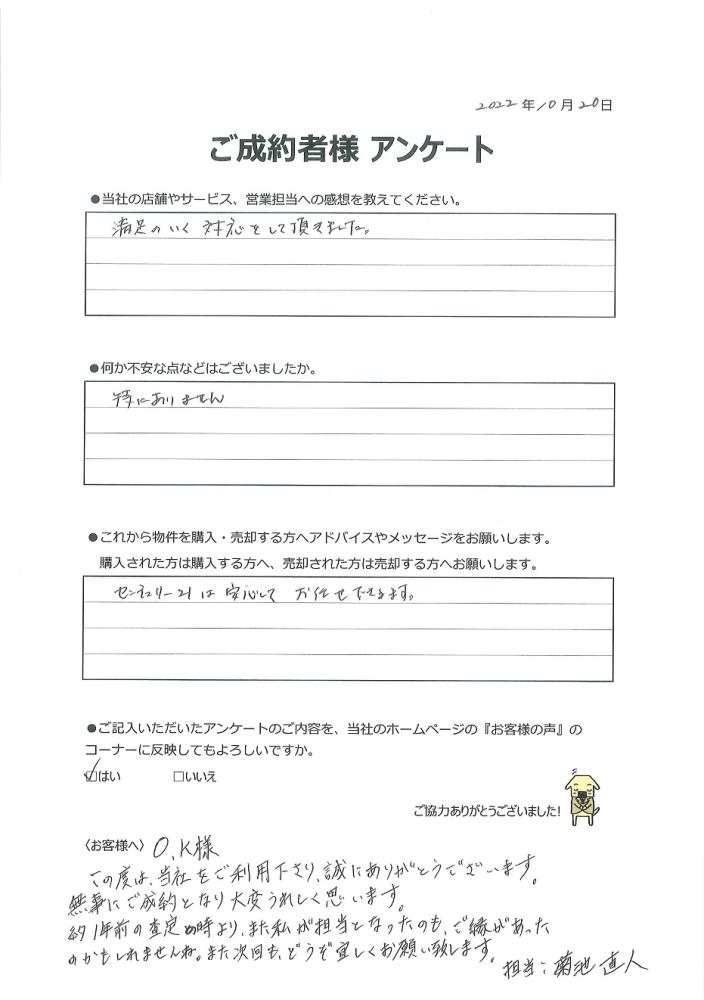 2022年10月20日
ご成約者様 アンケート
●当社の店舗やサービス、営業担当への感想を教えてください。
満足のいく 対応をして頂きました。
●何か不安な点などはございましたか。
特にありません
●これから物件を購入・売却する方へアドバイスやメッセージをお願いします。
購入された方は購入する方へ、売却された方は売却する方へお願いします。
センチュリー21は 安心して お任せできます。
●ご記入いただいたアンケートのご内容を、当社のホームページの『お客様の声』の
コーナーに反映してもよろしいですか。
☑はい □いいえ
ご協力ありがとうございました!
〈お客様へ〉 O.K様
この度は、当社をご利用下さり、誠にありがとうございます。
無事にご成約となり大変うれしく思います。
約1年前の査定の時より、また私が担当となったのも、ご縁があった
のかもしれませんね。また次回も、どうぞ宜しくお願い致します。
担当:菊池 直人